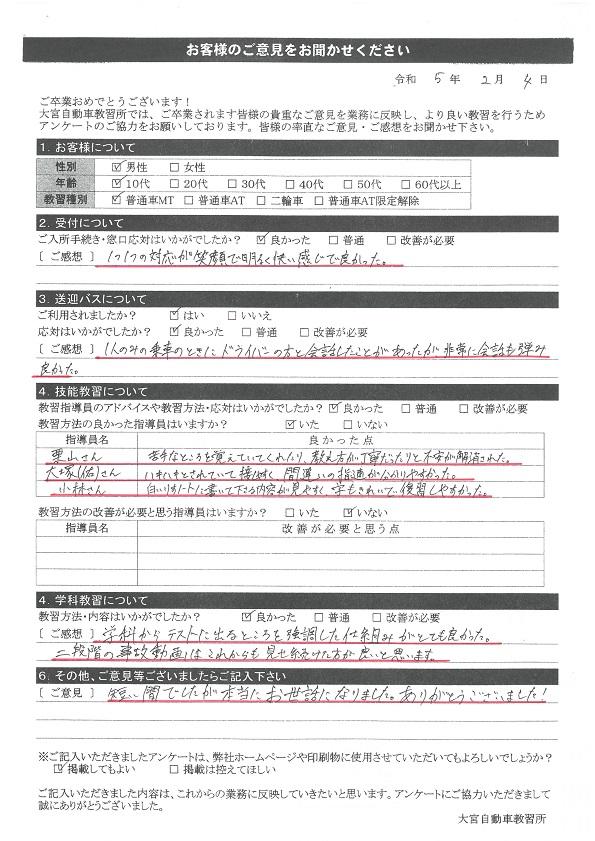 お客様のご意見をお聞かせください
令和 5 年 2 月 4 日
ご卒業おめでとうございます!
大宮自動車教習所では、ご卒業されます皆様の貴重なご意見を業務に反映し、より良い教習を行うため
アンケートのご協力をお願いしております。皆様の率直なご意見・ご感想をお聞かせ下さい。
1. お客様について
性別 ☑男性 □女性
年齢 ☑10代 □20代 □30代 □40代 □50代 □60代以上
教習種別 ☑普通車MT □普通車AT □二輪車 □普通車AT限定解除
2. 受付について
ご入所手続き・窓口応対はいかがでしたか? ☑良かった □普通 □改善が必要
[ ご感想 ] 1つ1つの対応が笑顔で明るく使い感じで良かった。
3. 送迎バスについて
ご利用されましたか? ☑はい □いいえ
応対はいかがでしたか? ☑良かった □普通 □改善が必要
[ ご感想 ] 1人のみの乗車のときにドライバーの方と会話したことがあったが非常に会話も弾み
良かった。
4. 技能教習について
教習指導員のアドバイスや教習方法・応対はいかがでしたか? ☑良かった □普通 □改善が必要
教習方法の良かった指導員はいますか? ☑いた □いない
指導員名 良かった点
栗山さん 苦手なところを覚えていてくれたり、教え方が丁寧だったりと不安が解消された。
大塚(佑)さん ハキハキとされていて接しやすく、間違いの指摘が分かりやすかった。
小林さん 白いノートに書いて下さる内容が見やすく、字もきれいで復習しやすかった。
教習方法の改善が必要と思う指導員はいますか? □いた ☑いない
指導員名 改善が必要と思う点
4. 学科教習について
教習方法・内容はいかがでしたか? ☑良かった □普通 □改善が必要
[ ご感想 ] 学科からテストに出るところを強調した仕組みがとても良かった。
二段階の事故動画はこれからも見せ続けた方が良いと思います。
6. その他、ご意見等ございましたらご記入下さい
[ ご意見 ] 短い間でしたが本当にお世話になりました。ありがとうございました!
※ご記入いただきましたアンケートは、弊社ホームページや印刷物に使用させていただいてもよろしいでしょうか?
☑掲載してもよい □掲載は控えてほしい
ご記入いただきました内容は、これからの業務に反映していきたいと思います。アンケートにご協力いただきまして
誠にありがとうございました。
大宮自動車教習所